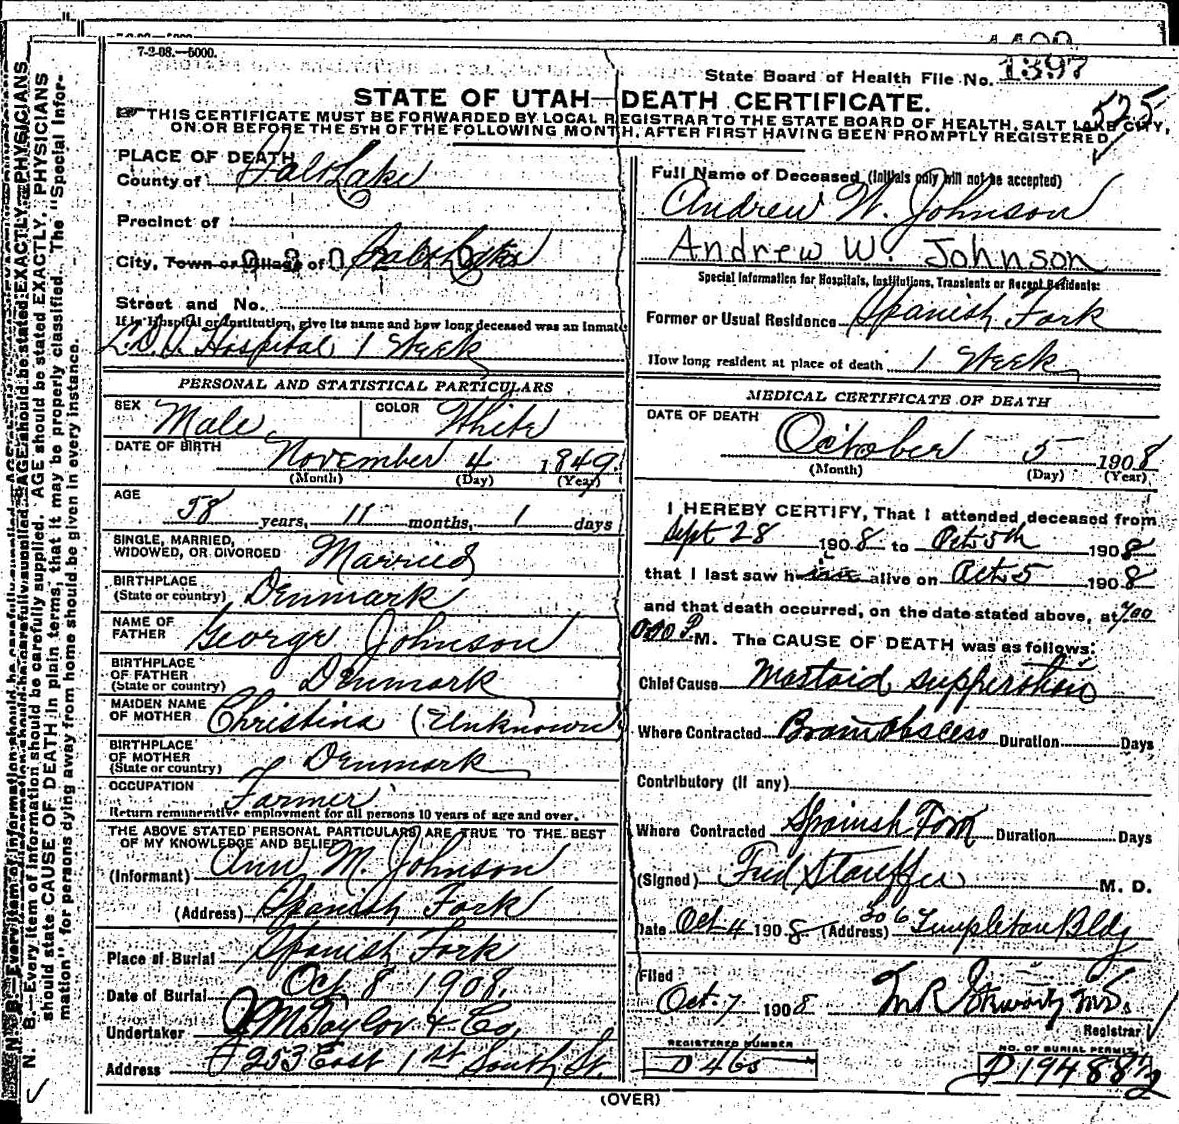 7-2-08.—5000.
State Board of Health File No. 1397
525
STATE OF UTAH—DEATH CERTIFICATE.
THIS CERTIFICATE MUST BE FORWARDED BY LOCAL REGISTRAR TO THE STATE BOARD OF HEALTH, SALT LAKE CITY,
ON OR BEFORE THE 5TH OF THE FOLLOWING MONTH, AFTER FIRST HAVING BEEN PROMPTLY REGISTERED
N. B.—Every item of information should be carefully supplied. AGE should be stated EXACTLY. PHYSICIANS
should state CAUSE OF DEATH in plain terms, that it may be properly classified. The "Special Infor-
mation" for persons dying away from home should be given in every instance.
PLACE OF DEATH
County of Salt Lake
Precinct of
City, Town or Village of Salt Lake
Street and No.
If in Hospital or Institution, give its name and how long deceased was an inmate
L.D.S. Hospital 1 Week
PERSONAL AND STATISTICAL PARTICULARS
SEX Male COLOR White
DATE OF BIRTH November 4 1849
(Month) (Day) (Year)
AGE 58 years, 11 months, 1 days
SINGLE, MARRIED,
WIDOWED, OR DIVORCED Married
BIRTHPLACE
(State or country) Denmark
NAME OF
FATHER George Johnson
BIRTHPLACE
OF FATHER
(State or country) Denmark
MAIDEN NAME
OF MOTHER Christina (Unknown
BIRTHPLACE
OF MOTHER
(State or country) Denmark
OCCUPATION Farmer
Return remunerative employment for all persons 10 years of age and over.
THE ABOVE STATED PERSONAL PARTICULARS ARE TRUE TO THE BEST
OF MY KNOWLEDGE AND BELIEF
(Informant) Ann M. Johnson
(Address) Spanish Fork
Place of Burial Spanish Fork
Date of Burial Oct 8 1908.
Undertaker O.M. Taylor & Co.
Address 253 East 1st South St.
Full Name of Deceased (Initials only will not be accepted)
Andrew W. Johnson
Andrew W. Johnson
Special Information for Hospitals, Institutions, Transients or Recent Residents:
Former or Usual Residence Spanish Fork
How long resident at place of death 1 Week
MEDICAL CERTIFICATE OF DEATH
DATE OF DEATH October 5 1908
(Month) (Day) (Year)
I HEREBY CERTIFY, That I attended deceased from
Sept 28 1908 to Oct 5th 1908
that I last saw him alive on Oct. 5 1908
and that death occurred, on the date stated above, at 7.00
P.M. The CAUSE OF DEATH was as follows:
Chief Cause Mastoid suppuration
Where Contracted Brain abscess Duration Days
Contributory (if any)
Where Contracted Spanish Fork Duration Days
(Signed) Fred Stauffer M. D.
Date Oct 4 1908 (Address) 306 Templeton Bldg
Filed
Oct. 7 1908 M.D.
Registrar
REGISTERED NUMBER
D 465
NO. OF BURIAL PERMIT
D 19488 1/2
(OVER)